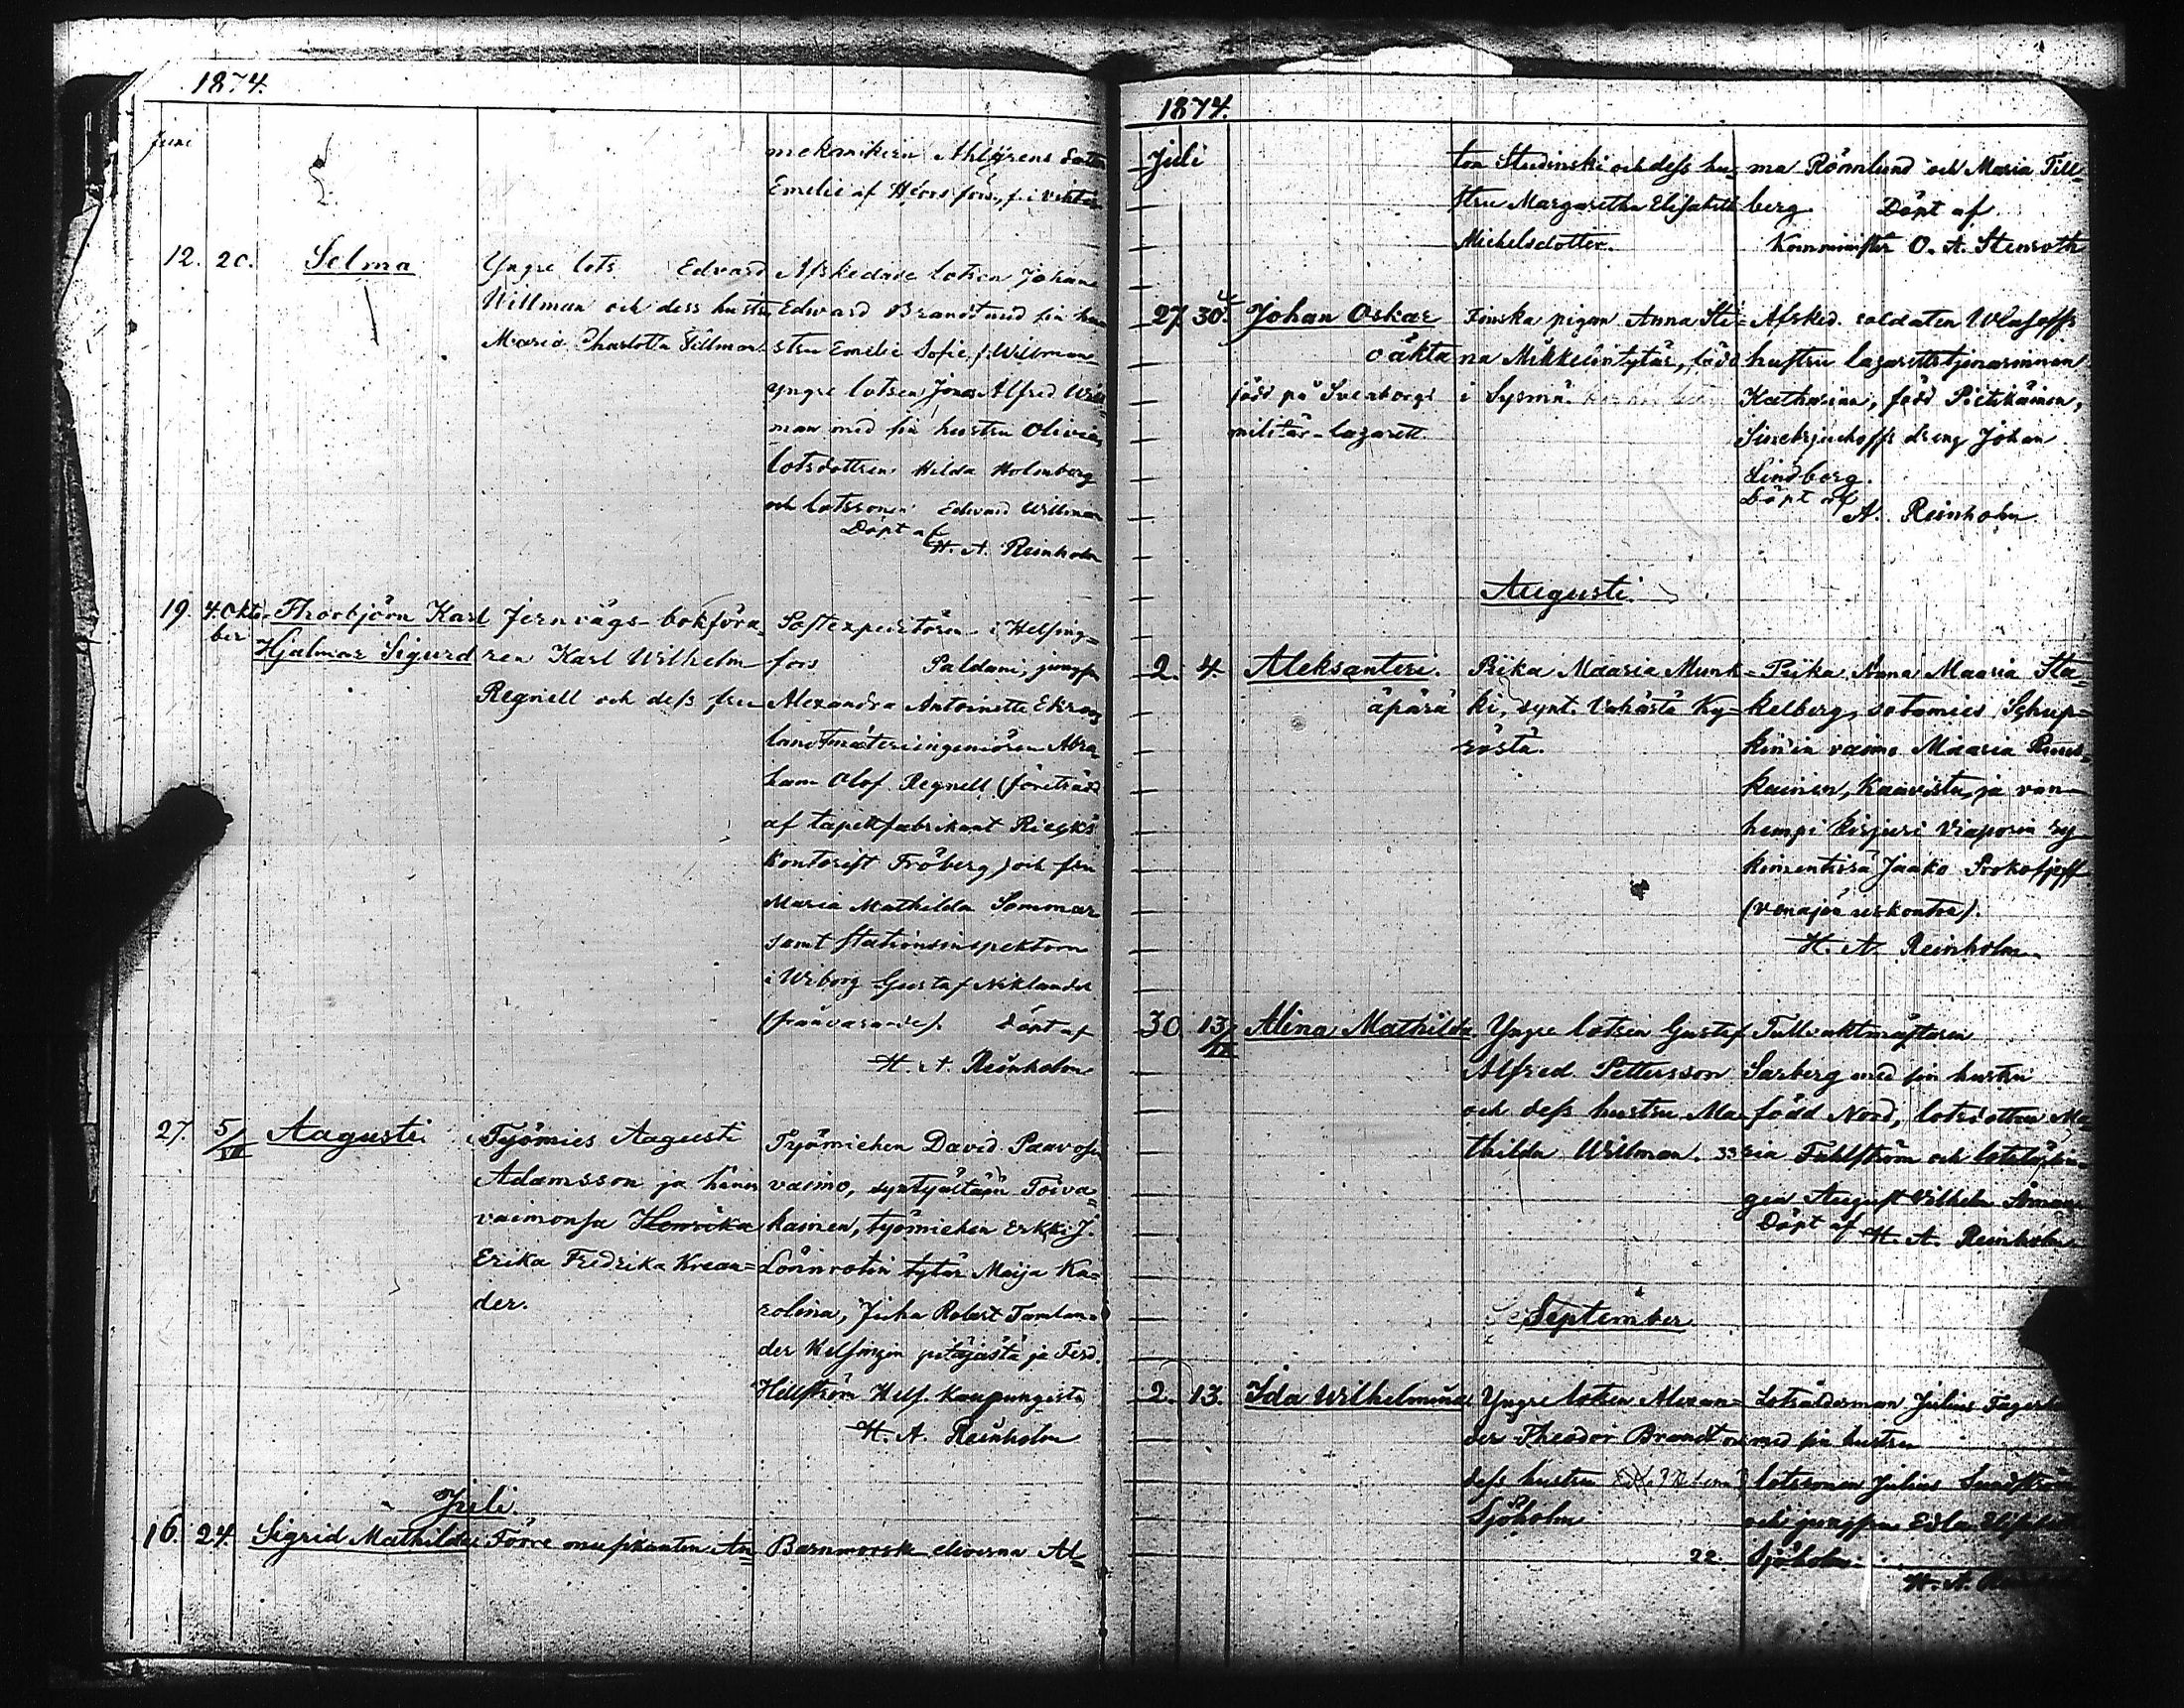 1874.
Juni
mekanikern Ahlgrens dotter
Emelie af H:fors
12. 20. Selma
Yngre lots Edvard
Willman och dess hustru
Maria Charlotta Tillman
Afskedade lotsen Johan
Edward Brandt med sin hu-
stru Emelie Sofie, f. Willman
yngre lotsen Jonas Alfred Will-
man med sin hustru Olivia,
lotsdottren Hilda Holmberg
och lotssonen Edvard Willman
Döpt af
H. A. Reinholm
19. 4. Okto-
ber
Thorbjörn Karl
Hjalmar Sigurd
Jernvägs-bokföra-
ren Karl Wilhelm
Regnell och dess fru
Postexpeditören i Helsing-
fors Paldani, jungfru
Alexandra Antoinette
landtmäteriingeniören Abra-
ham Olof Regnell (företrädd
af tapetfabrikant Riegks
kontorist Fröberg) och fru
Maria Mathilda Sommar
samt stationsinspektorn
i Wiborg Gustaf Niklander
(frånvarande). Döpt af
H. A. Reinholm
27. 5/VII Aagusti
Työmies Aagusti
Adamsson ja hänen
vaimonsa Henrika
Erika Fredrika Krean-
der.
Työmiehen David Paavosen
vaimo, syntyältään Toiva-
kainen, työmiehen Erkki J.
Lönnrotin tytär Maija Ka-
rolina, Juha Robert Tamlan-
der Helsingin pitäjästä ja Ferd.
Hellström Hels. kaupungista
H. A. Reinholm
Juli.
16. 24. Sigrid Mathilda
Förre musikanten An-
Barnmorsk eleverna Al-
1874.
Juli
ton Studinski och dess hu-
stru Margaretha Elisabeth
Michelsdotter.
ma Rönnlund och Maria Till-
berg. Döpt af
Komminister O. A. Stenroth
27. 30. Johan Oskar
oäkta
född på Sveaborgs
militär-lazarett.
Finska pigan Anna Sti-
na Mikkelintytär, född
i Sysmä.
Afsked. soldaten Wlasoffs
hustru lazarettstjenarinnan
Katharina, född Pietikäinen,
Sinebrjuchoffs dreng Johan
Lindberg.
Döpt af
A. Reinholm
Augusti.
2. 4. Aleksanteri.
äpärä
Piika Maaria Munk-
ki, synt. Vähästä Ky-
röstä.
Piika Anna Maaria Sta-
kelberg, sotamies
vaimo Maaria
kainen, Kaavista, ja van-
hempi kirjuri Viaporin ry-
kimentissä Jaako Prokofjeff
(venäjän uskontoa).
H. A. Reinholm.
30. 13/IX Alina Mathilda
Yngre lotsen Gustaf
Alfred Pettersson
och dess hustru Ma-
thilda Willman. 33
Tullvaktmästaren
Sarberg med sin hustru
född Nord, lotsdottren Ma-
ria Fahlström och lotslärlin-
gen August Vilhelm
Döpt af H. A. Reinholm
September
2. 13. Ida Wilhelmina
Yngre lotsen Alexan-
der Theodor Brandt o
dess hustru
Sjöholm
22.
Lotsåldersman Julius
med sin hustru
lotssonen Julius Sundström
och jungfrun Edla Elisabeth
Sjöholm.
H. A.